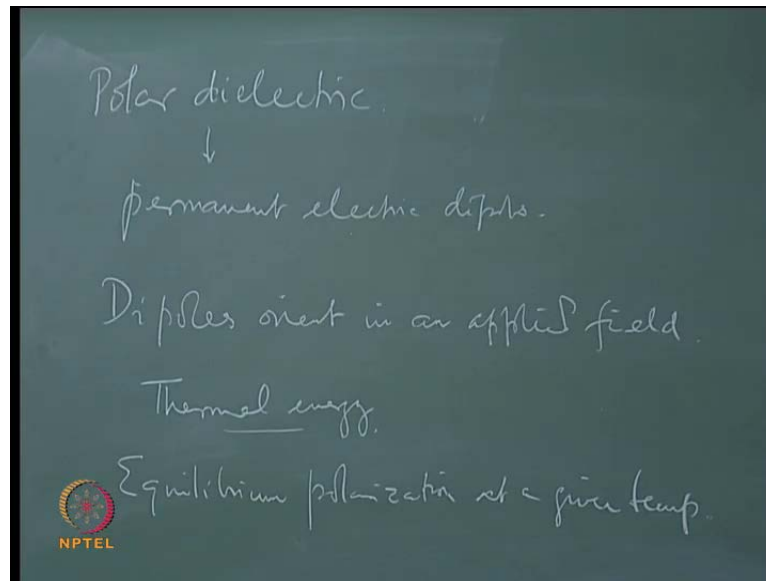 Polar dielectric.
↓
permanent electric dipols.
Dipoles orient in an applied field.
Thermal energy.
Equilibrium polarization at a given temp.
NPTEL